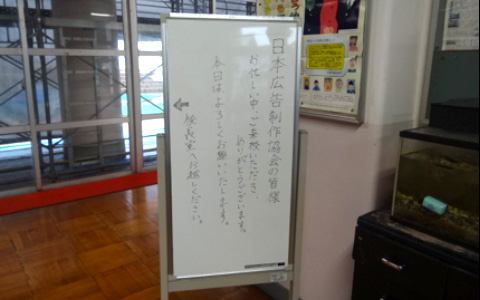 日本広告制作協会の皆様
お忙しい中、ご来校いただき、
ありがとうございます。
本日は、よろしくお願いいたします。
校長室へお越しください。